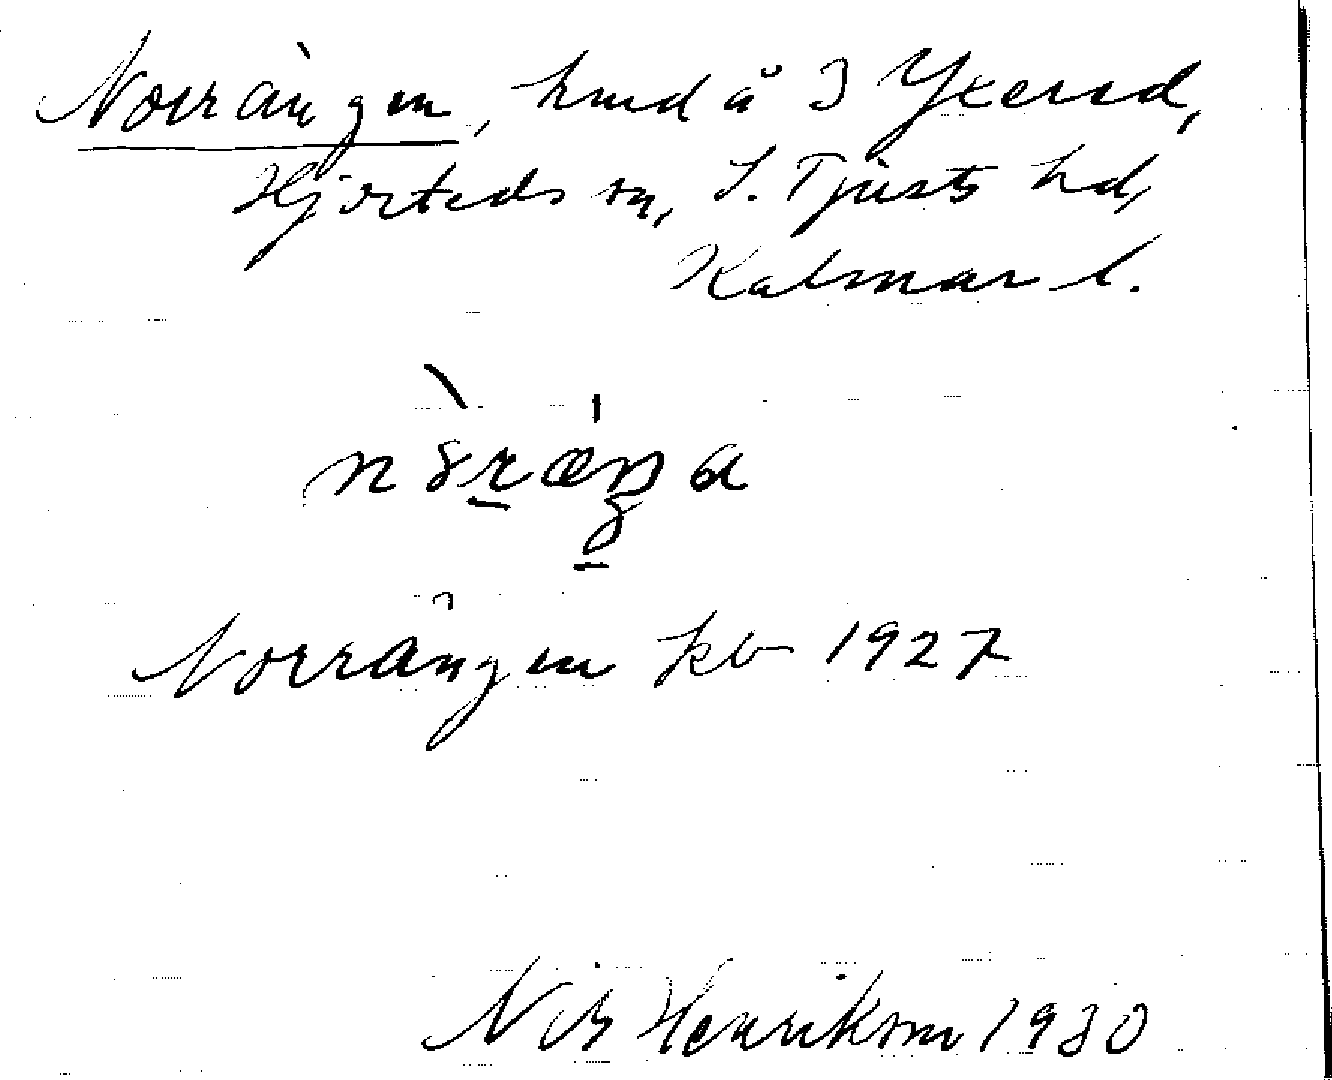 Norrängen, hmd å I Yxered,
Hjorteds sn, S. Tjusts hd,
Kalmar l.
Norrängen kb 1927
Nils Henrikson 1930